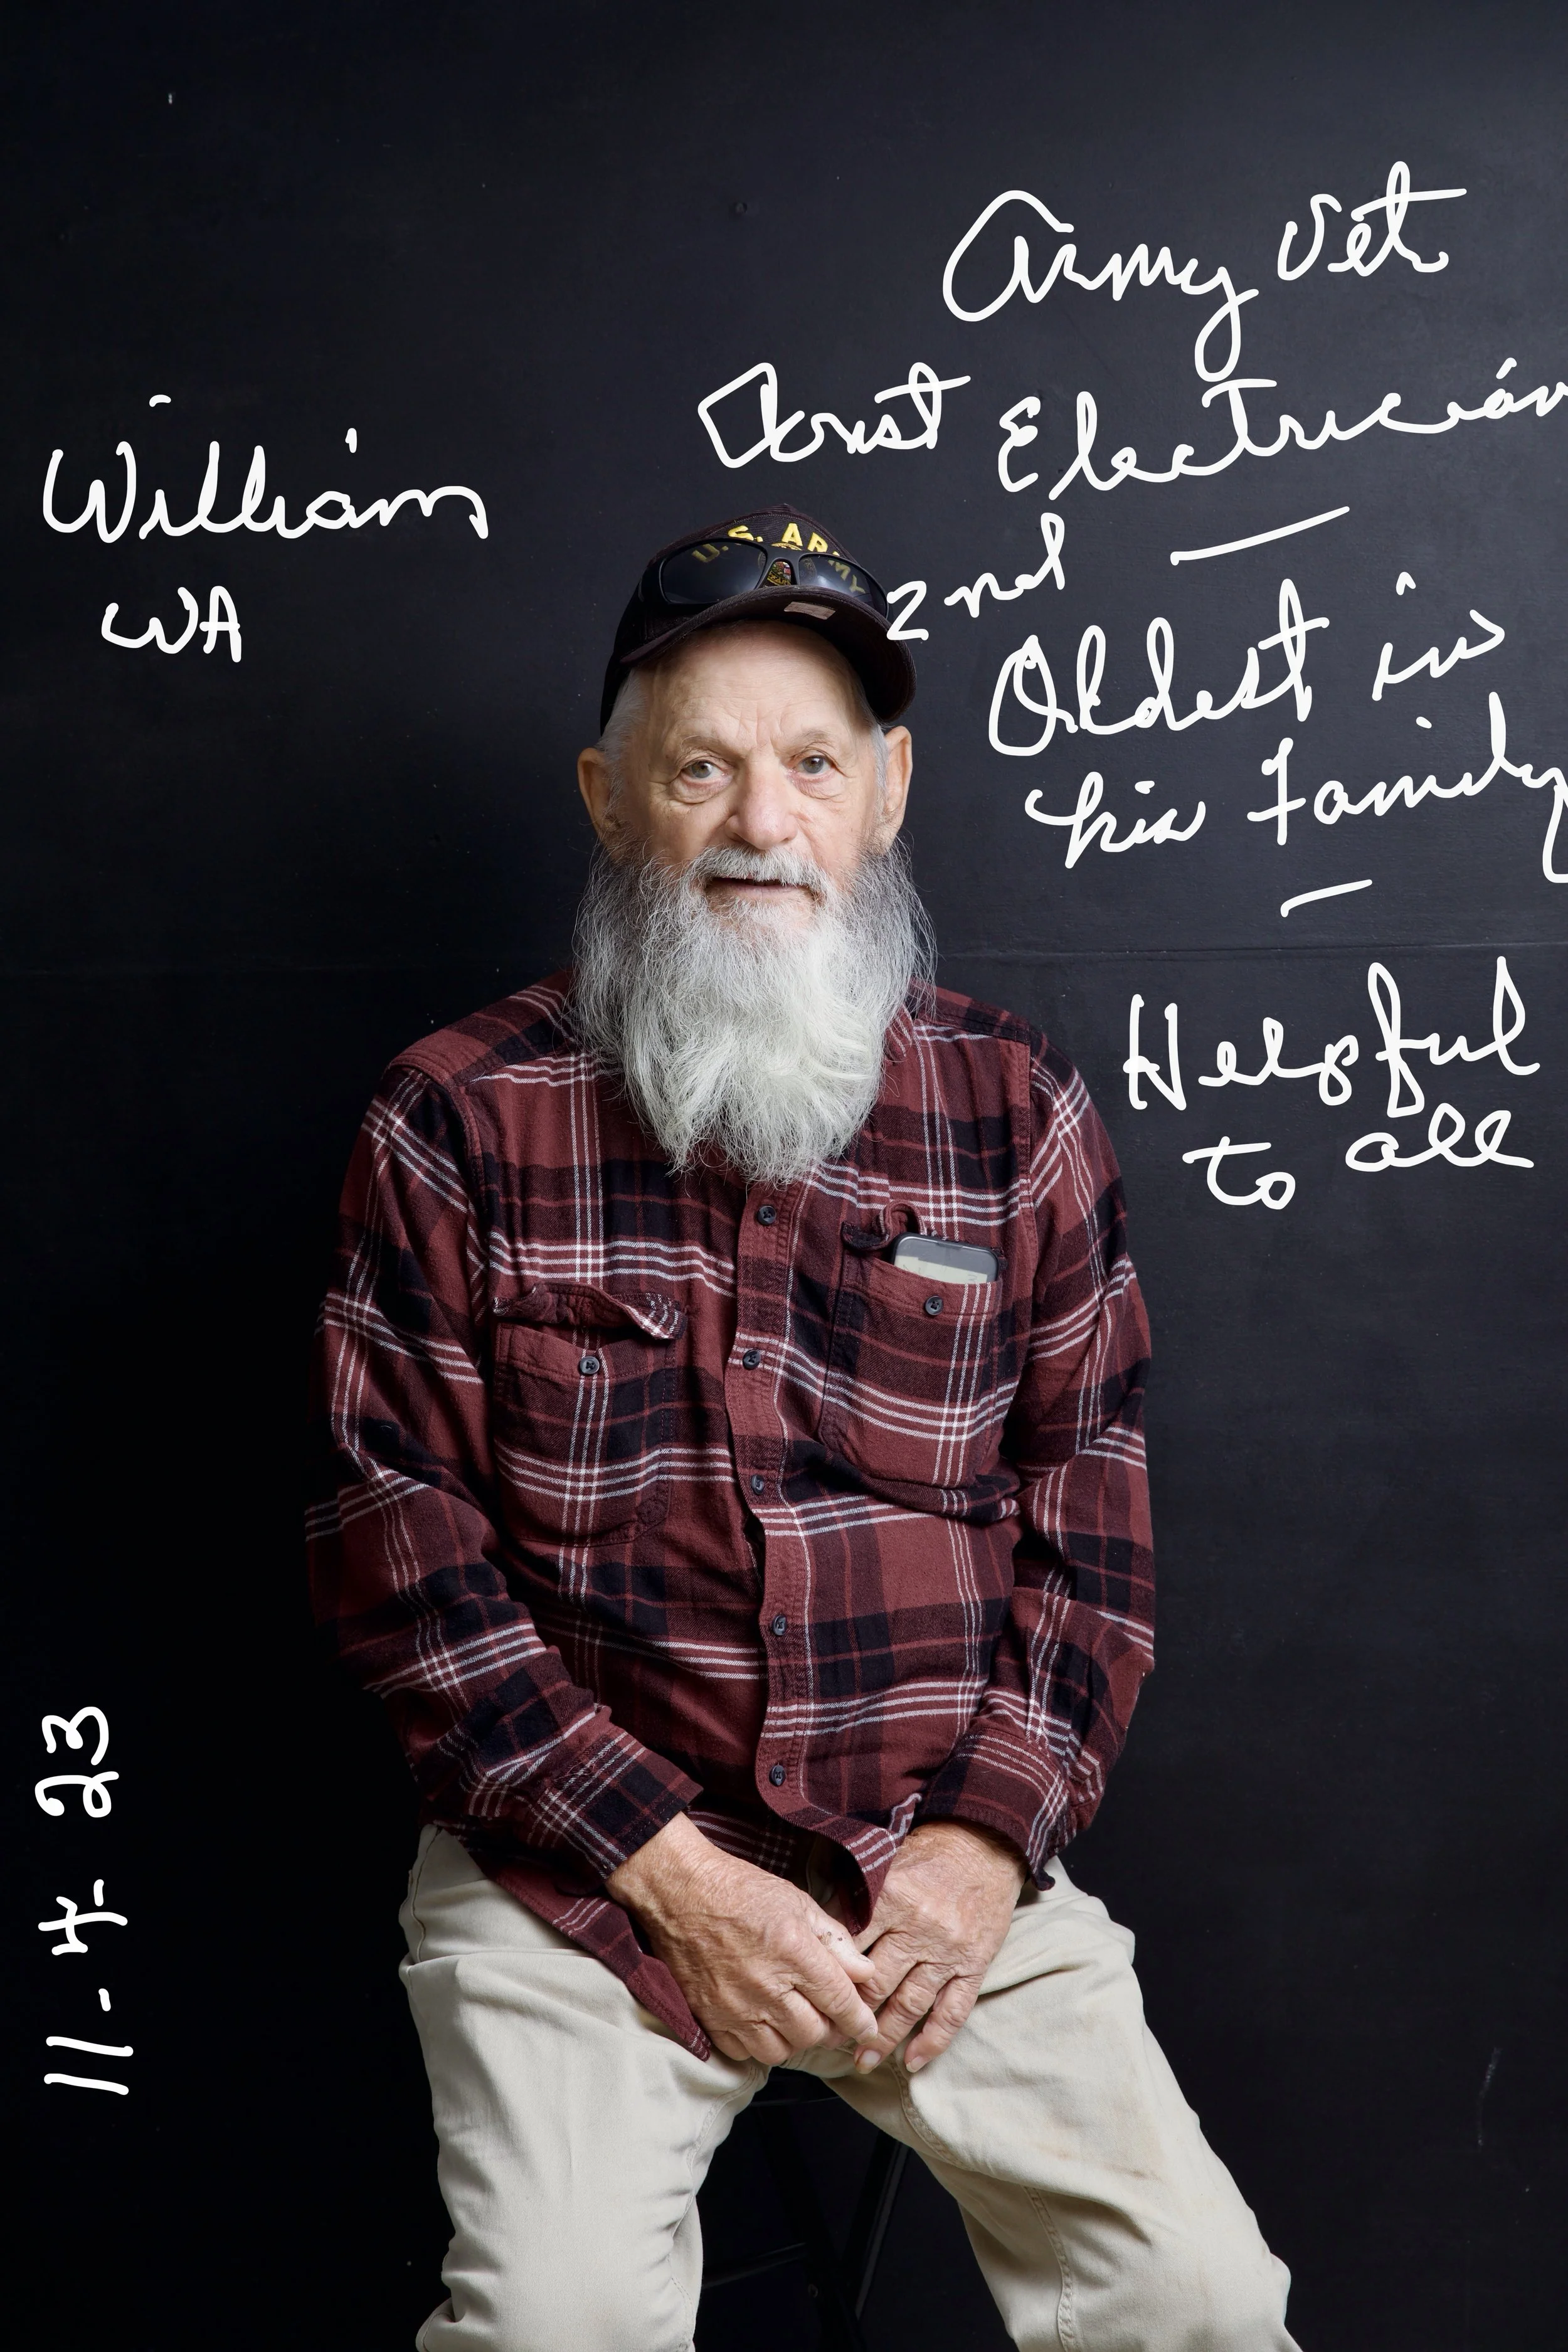 William
WA
Army Vet
Const Electrician
2nd
Oldest in
his Family
Helpful
to all
U.S. ARMY
11-4-23